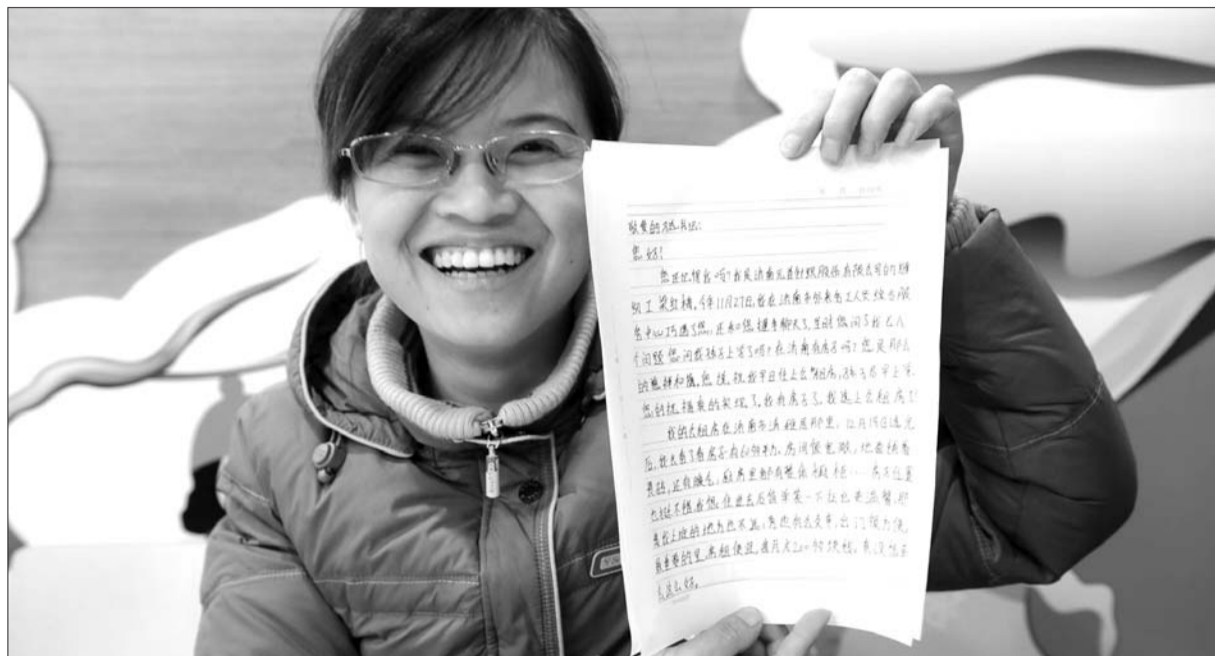 敬爱的 书记:
您好!
您还记得我吗?我是济南元首针织股份有限公司的缝
纫工梁红梅。今年11月27日,我在济南市外来务工人员综合服
务中心巧遇了您,还和您握手聊天了。当时您问了我几
个问题,您问我孩子上学了吗?在济南有房子吗?您是那么
的慈祥和蔼。您说,祝我早日住上公租房,孩子尽早上学。
您的祝福真的实现了。我有房子了,我选上公租房了!
我的公租房在济南市清雅居那里,12月15日选完
后,我去看了看房子,有60多平方。房间很宽敞,地面铺着
瓷砖,还有暖气,厨房里都有整体橱柜……房子位置
也挺不错,我想,住进去后简单装一下应也要温馨,那
离我上班的地方也不远,旁边有公交车,出门很方便。
最重要的是,房租便宜,每月才200多块钱,